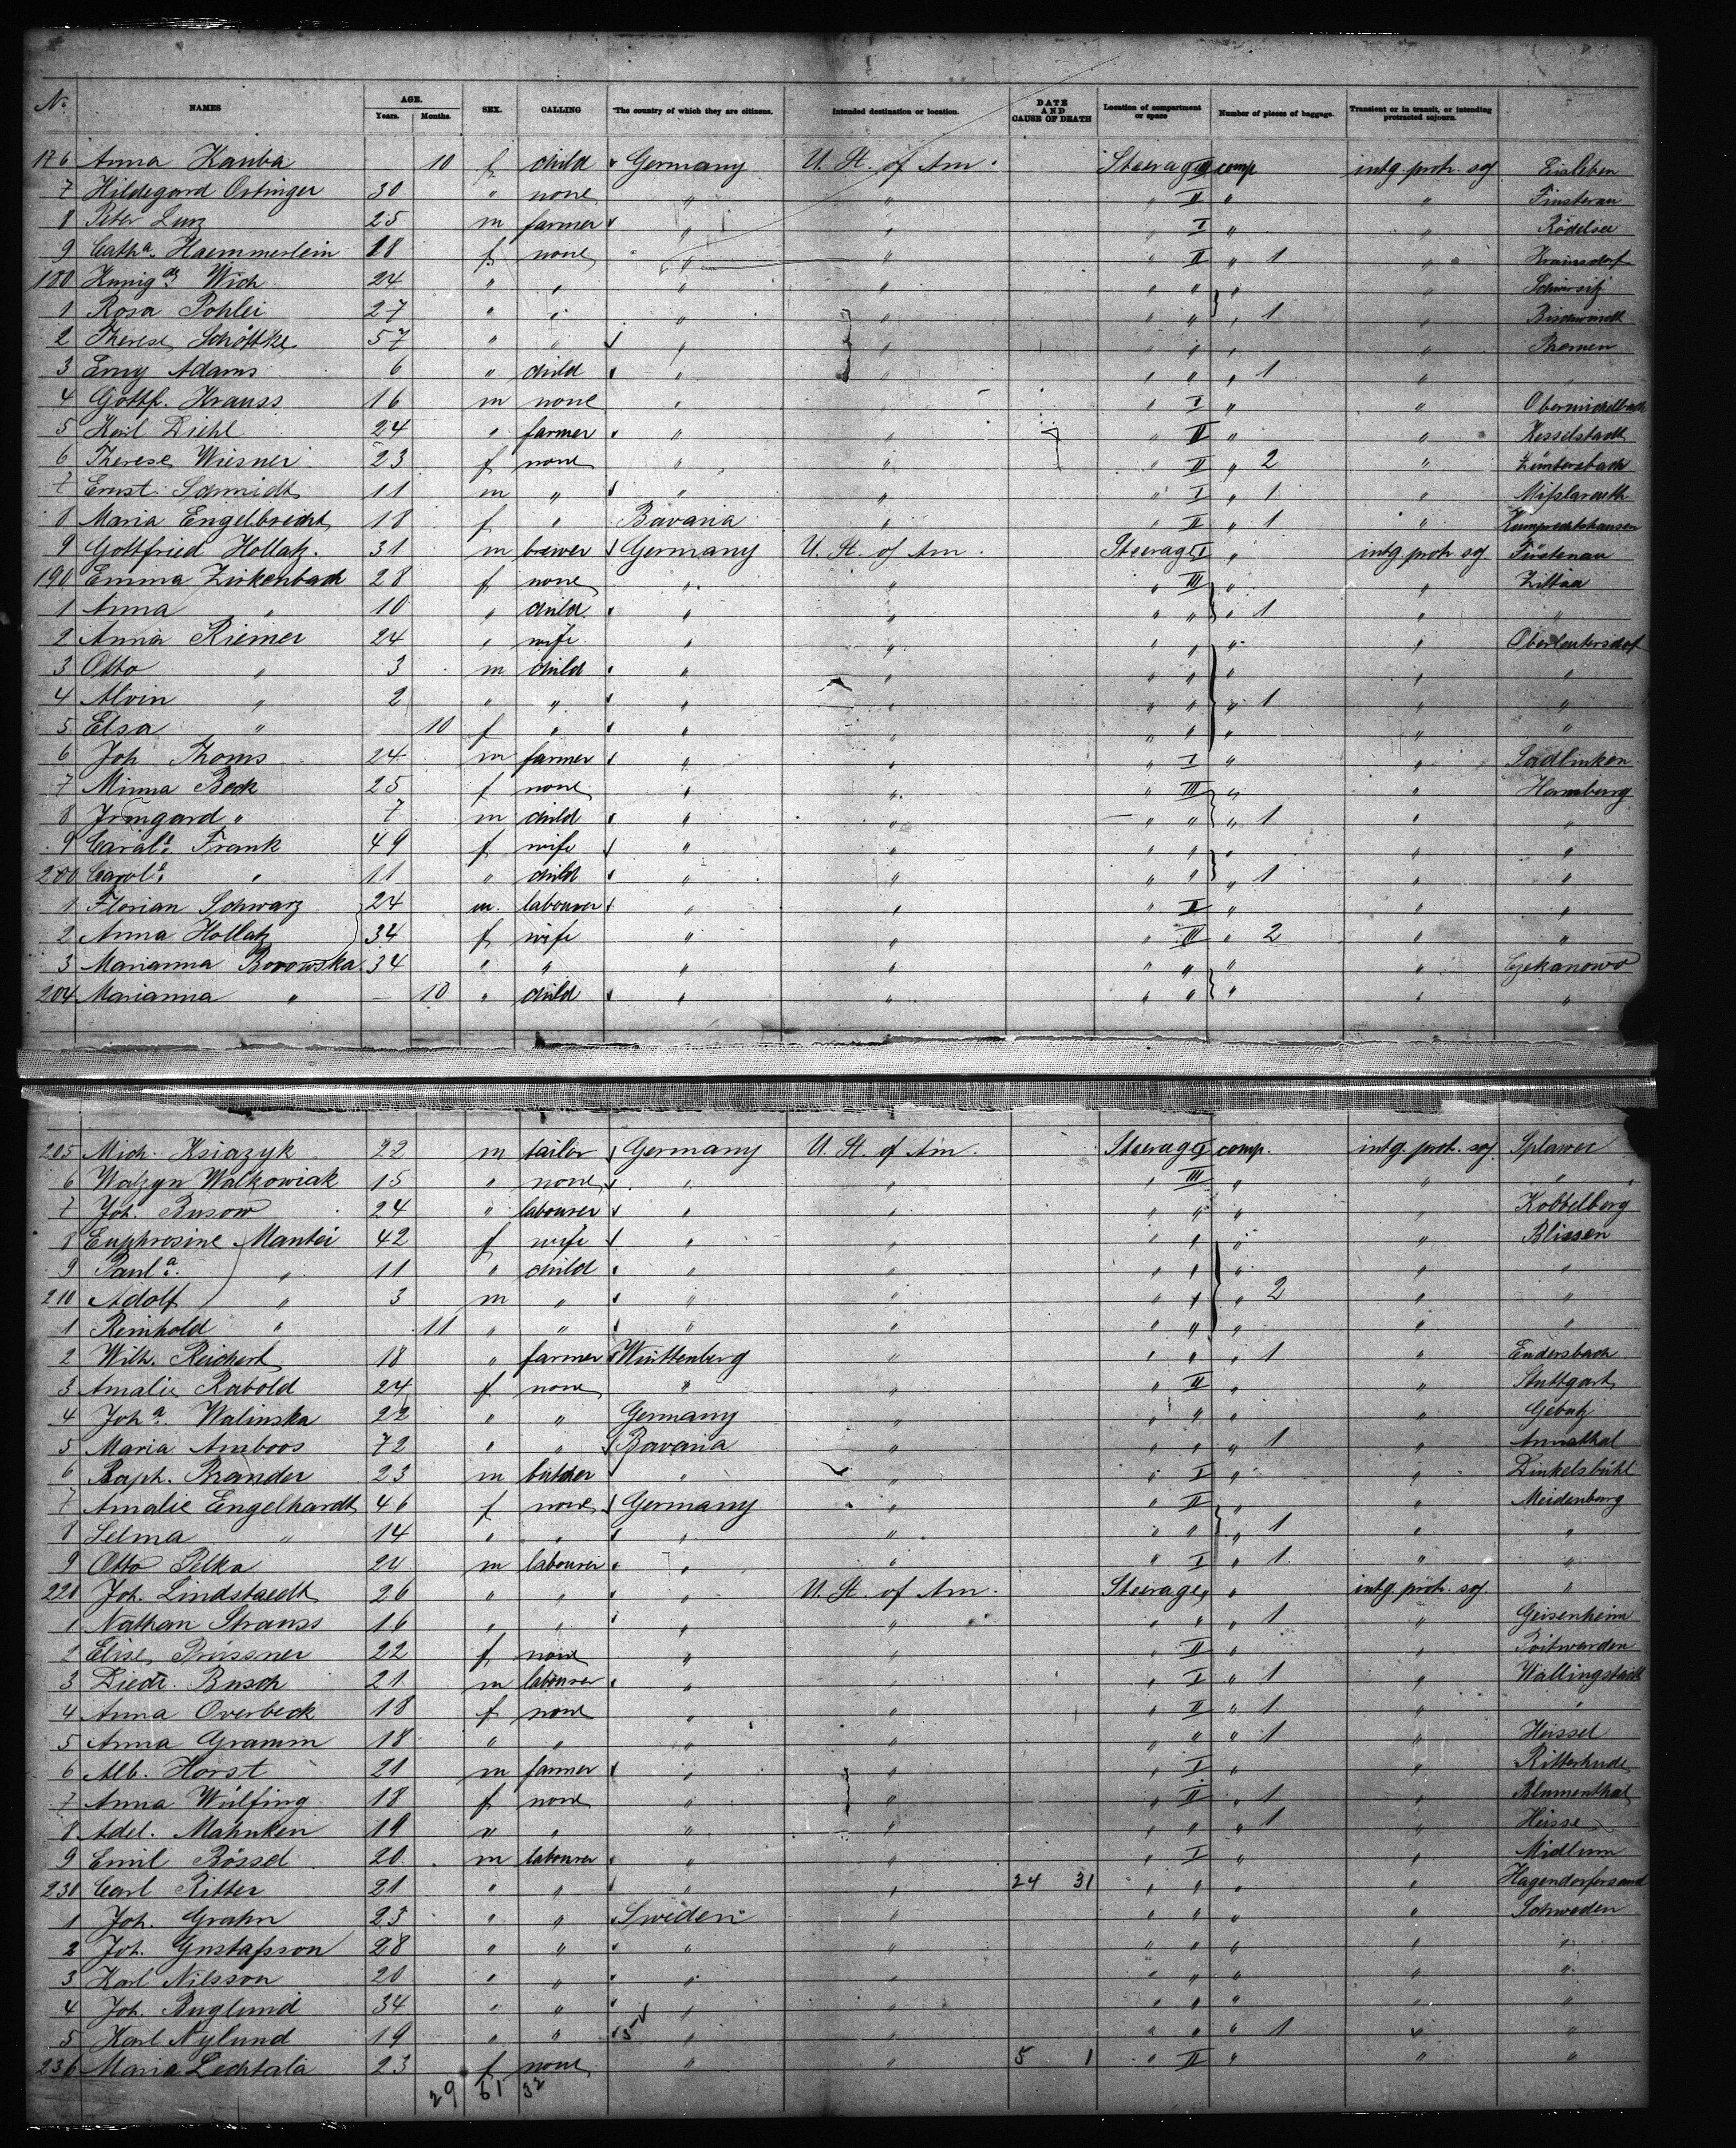 No. NAMES AGE. Years. Months. SEX. CALLING The country of which they are citizens. Intended destination or location. DATE AND CAUSE OF DEATH Location of compartment or space Number of pieces of baggage. Transient or in transit, or intending protracted sojourn.
176 Anna Kauba 10 f child Germany U. St. of Am. Steerage II comp intg. prot. soj Eisleben
7 Hildegard Ortinger 30 " none " " " II " " Finsterau
8 Peter Lurz 25 m farmer " " " I " " Rödelsee
9 Catha. Haemmerlein 18 f none " " " II " 1 "
180 Kunigde Wich 24 " " " " " " " "
1 Rosa Pohlei 27 " " " " " " " 1 " Bischwindt
2 Therese Schöttke 57 " " " " " " " " Bremen
3 Emy Adams 6 " child " " " " " 1 "
4 Gottf. Krauss 16 m none " " " I " " Obermichelbach
5 Karl Diehl 24 " farmer " " " II " " Kesselstadt
6 Therese Wiesner 23 f none " " " II " 2 "
7 Ernst Schmidt 11 m " " " " I " 1 "
8 Maria Engelbrecht 18 f " Bavaria " " II " 1 "
9 Gottfried Hollatz. 31 m brewer Germany U. St. of Am. Steerage I " intg. prot. soj Fürstenau
190 Emma Zirkenbach 28 f none " " " III " " Zittau
1 Anna " 10 " child " " " " " 1 " "
2 Anna Riemer 24 " wife " " " " " " Oberleutersdorf
3 Otto " 3 m child " " " " " " "
4 Alvin " 2 " " " " " " " 1 " "
5 Elsa " 10 f " " " " " " " "
6 Joh Thoms 24 m farmer " " " I " " Sadlinken
7 Minna Beck 25 f none " " " III " " Hamburg
8 Irmgard " 7 m child " " " " " 1 " "
9 Carole. Frank 49 f wife " " " " " " "
200 Carole. " 11 " child " " " " " 1 " "
1 Florian Schwarz 24 m. labourer " " " I " " "
2 Anna Hollatz 34 f wife " " " III " 2 " "
3 Marianna Borowska 34 " " " " " " " " Czekanowo
204 Marianna " – 10 " child " " " " " " "
205 Mich. Ksiazyk 22 m tailor Germany U. St. of Am. Steerage I comp. intg. prot. soj. Splawec
6 Walzyn Walkowiak 15 " none " " " III " " "
7 Joh. Busow 24 " labourer " " " " " " Kobbelberg
8 Euphrosine Mantei 42 f wife " " " " " " Bliesen
9 Paula. " 11 " child " " " " " " "
210 Adolf " 3 m " " " " " " 2 " "
1 Reinhold " 11 " " " " " " " " "
2 Wilh. Reichert 18 " farmer Württenberg " " " " 1 " Endersbach
3 Amalie Rabold 24 f none " " " II " " Stuttgart
4 Joha. Walinska 22 " " Germany " " " " "
5 Maria Amboos 72 " " Bavaria " " " " 1 " Annathal
6 Raph. Brander 23 m butcher " " " I " " Dinkelsbühl
7 Amalie Engelhardt 46 f none Germany " " II " " Meidenburg
8 Selma " 14 " " " " " " " 1 " "
9 Otto Pelka 24 m labourer " " " I " 1 " "
220 Joh. Lindstaedt 26 " " " U. St. of Am. Steerage " " intg. prot. soj. "
1 Nathan Strauss 16 " " " " " " " 1 " Geisenheim
2 Elise Prüssner 22 f none " " " II " " Poitwarden
3 Diedr. Busch 21 m labourer " " " I " 1 " Wallingstadt
4 Anna Overbeck 18 f none " " " II " 1 " "
5 Anna Gramm 18 " " " " " " " 1 " Heissel
6 Alb. Horst 21 m farmer " " " I " " Ritterhude
7 Anna Wülfing 18 f none " " " II " 1 " Blumenthal
8 Adel. Mahnken 19 " " " " " " " 1 "
9 Emil Rössel 20 m labourer " " " I " " Midlum
230 Carl Ritter 21 " " " " 24 31 " " " " Hagendorfersand
1 Joh. Grahn 23 " " Sweden " " " " " Schweden
2 Joh. Gustafsson 28 " " " " " " " " "
3 Karl Nilsson 20 " " " " " " " " "
4 Joh. Buglund 34 " " " " " " " " "
5 Karl Nylund 19 " " 5 " " " " " 1 " "
236 Maria Lechtala 23 f none " " 5 1 " II " " "
29 61 32